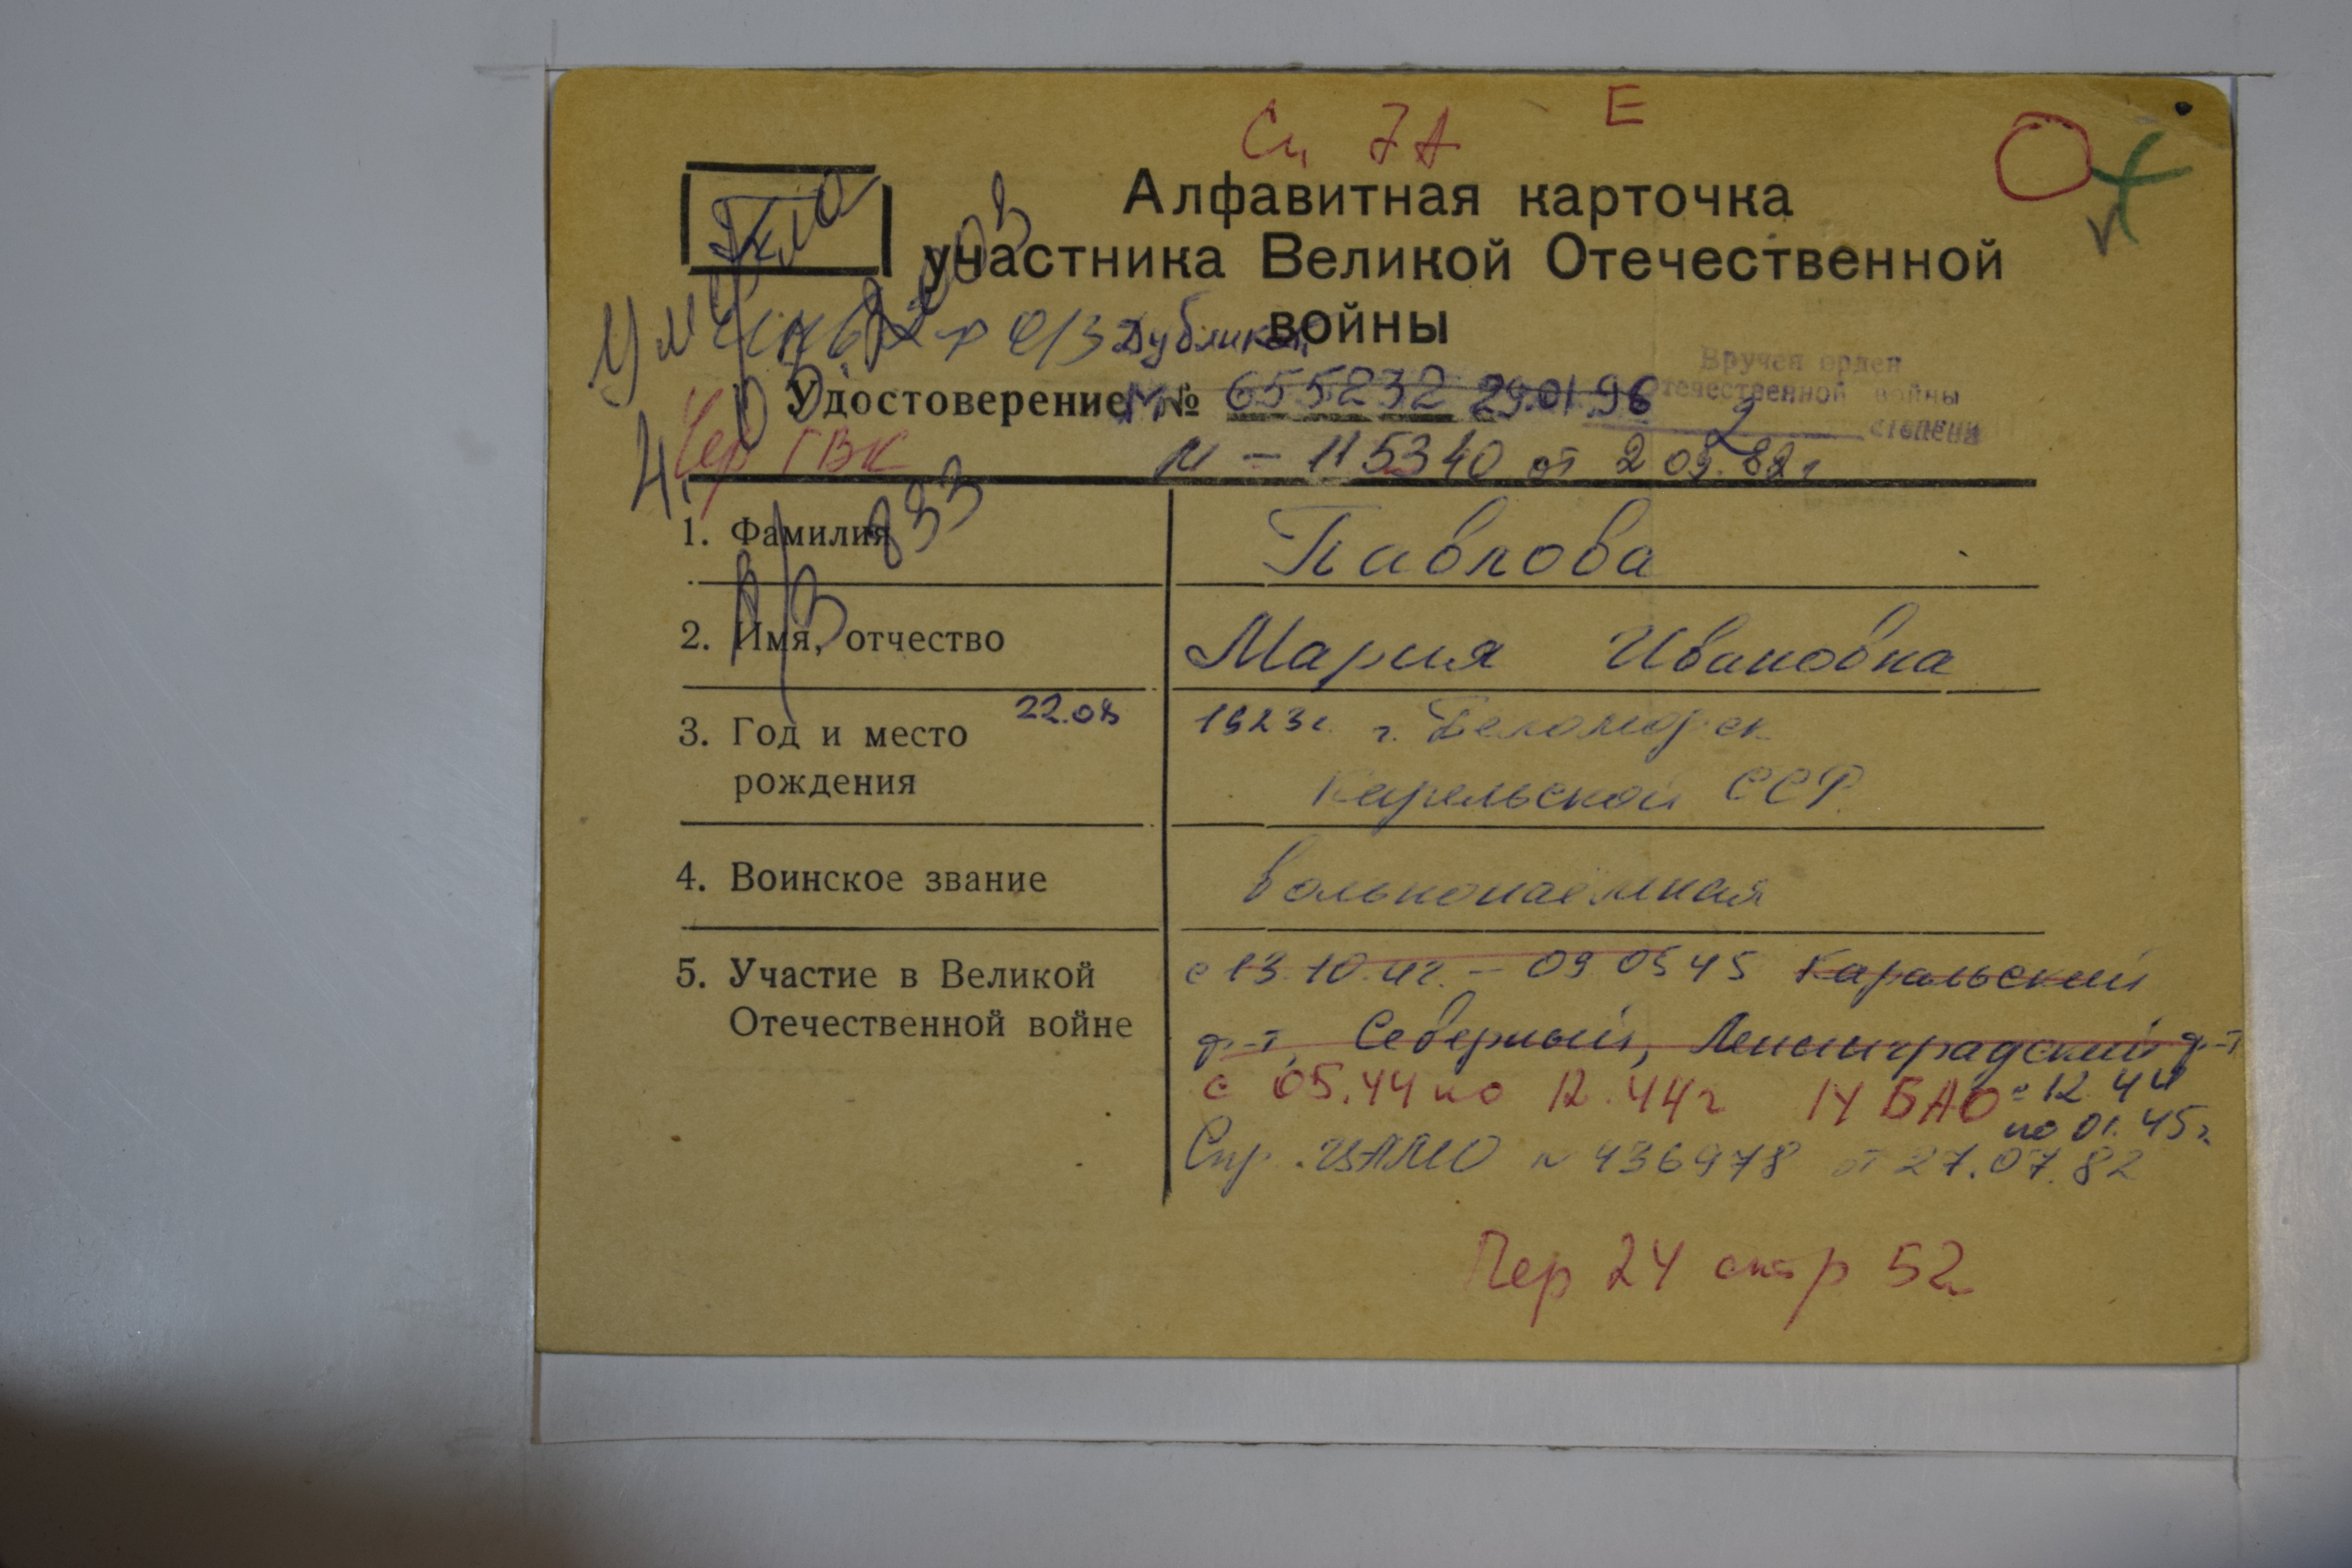 Е
Алфавитная карточка
участника Великой Отечественной
войны
Дубликат
Вручен орден
Отечественной войны
2 степени
Удостоверение № 655232 29.01.96
Чер ГВК
М – 115340 от 2 09.82г
1. Фамилия Павлова
2. Имя, отчество Мария Ивановна
3. Год и место рождения 22.08 1923г. г. Беломорск
Карельской ССР
4. Воинское звание вольнонаёмная
5. Участие в Великой Отечественной войне с 13.10.41г. – 09 05 45 Карельский
ф-т, Северный, Ленинградский ф-т
с 05.44 по 12.44г 14 БАО с 12 44
по 01.45г.
Спр. ЦАМО № 436978 от 27.07.82
Пер 24 стр 52